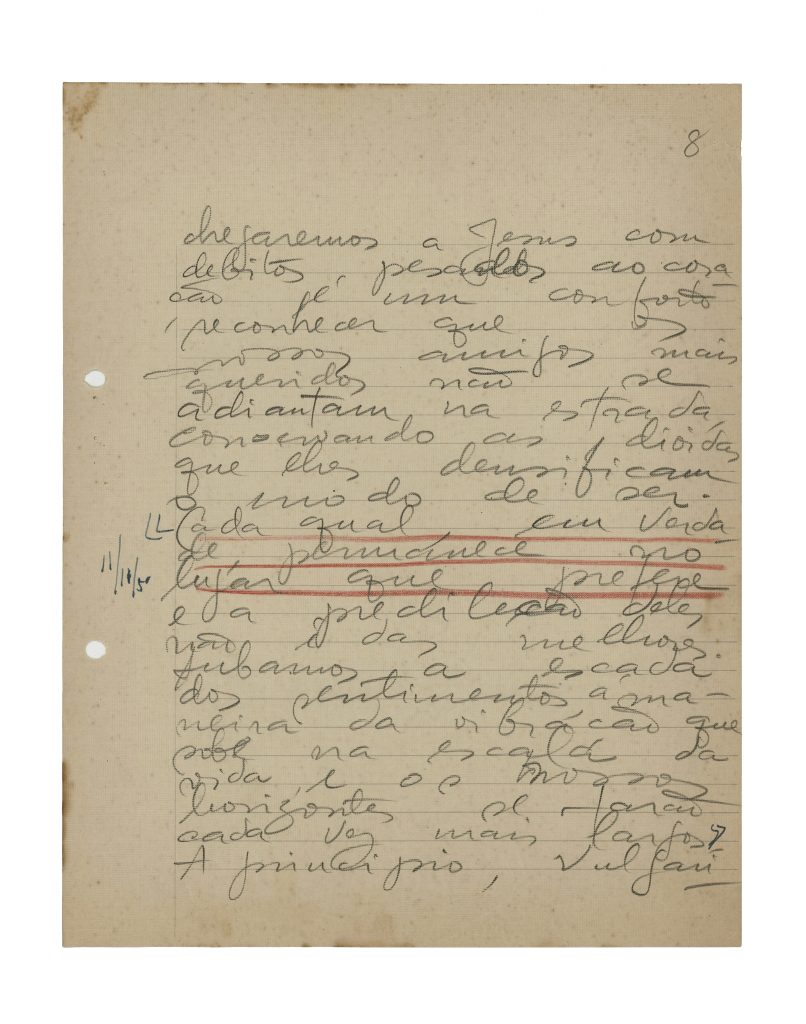 8
chegaremos a Jesus com
debitos, pesados ao cora-
ção é um conforto
reconhecer que os
nossos amigos mais
queridos não se
adiantam na estrada,
conservando as dividas
que lhes densificam
o modo de ser.
Cada qual, em verda-
de, permanece no
lugar que prefere
e a predileção dele,
não é das melhores.
Subamos a escada
dos sentimentos, á ma-
neira da vibração que
sobe na escala da
vida, e os nossos
horizontes se farão
cada vez mais largos.
A principio, vulgari
11/10/50